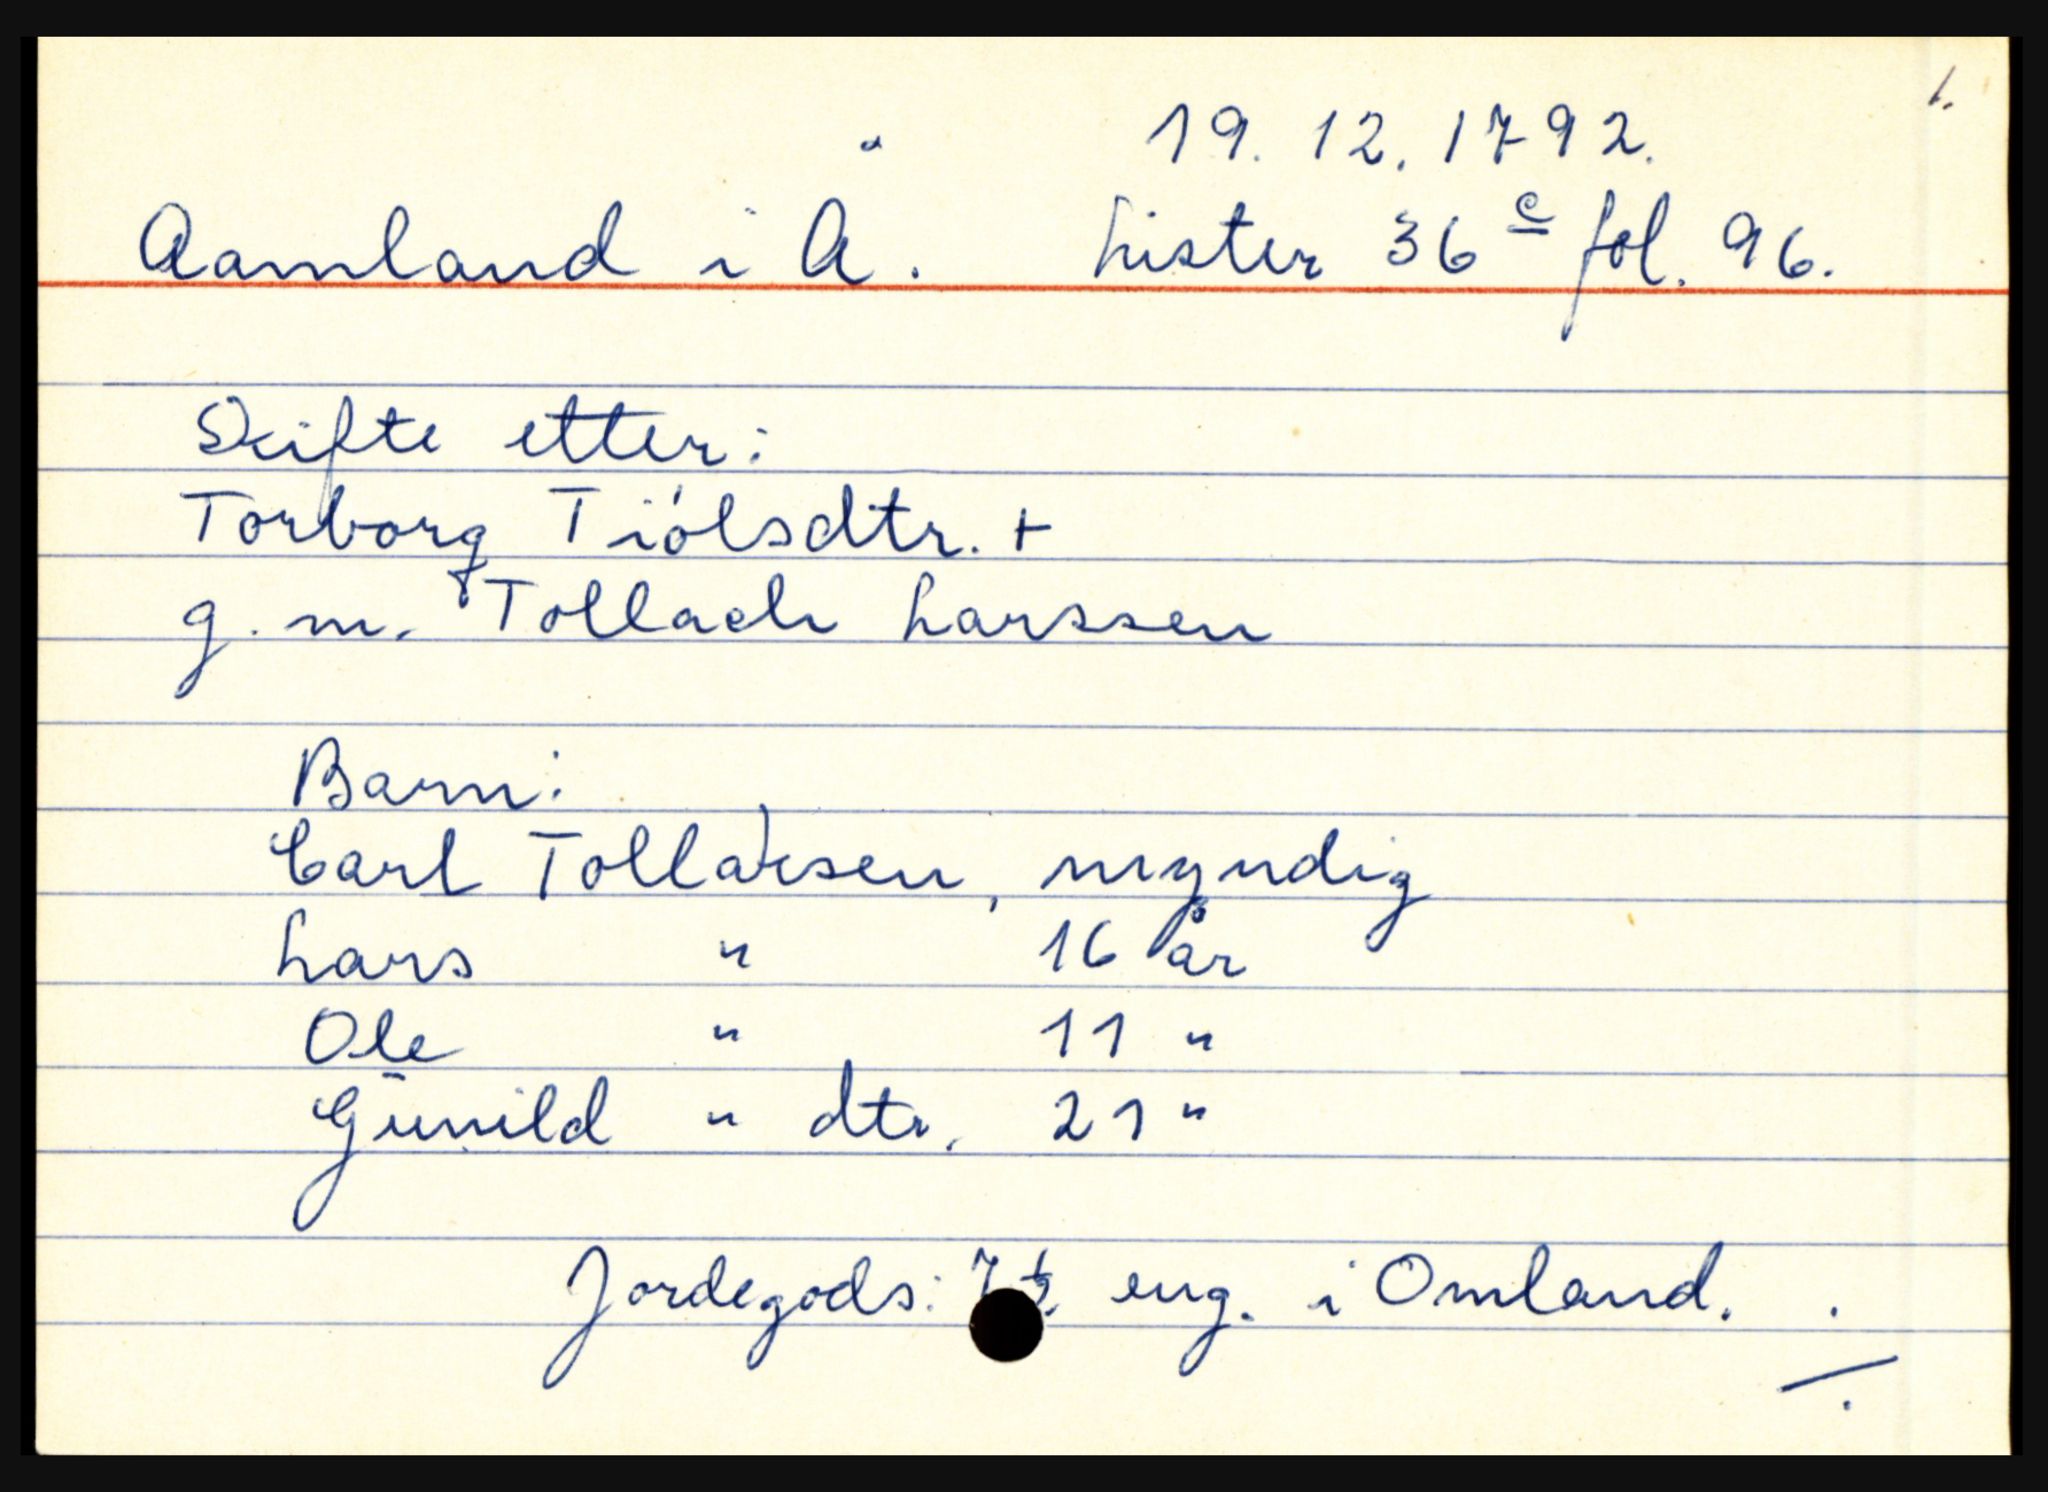 1.
19. 12. 1792.
Aamland i Å. Lister 36 c fol. 96.
Skifte etter:
Torborg Tiólsdtr. +
g. m. Tollach Larssen
Barn:
Carl Tollaksen, myndig
Lars " 16 år
Ole " 11 "
Gunild " dtr. 21 "
Jordegods: 7 1/2 eng. i Omland.